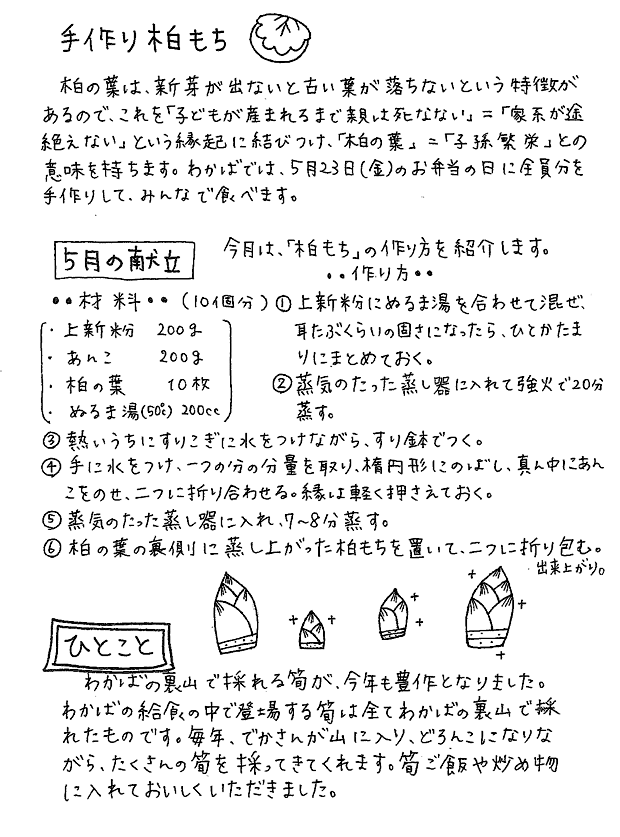 手作り柏もち
柏の葉は、新芽が出ないと古い葉が落ちないという特徴が
あるので、これを「子どもが産まれるまで親は死なない」=「家系が途
絶えない」という縁起に結びつけ、「柏の葉」=「子孫繁栄」との
意味を持ちます。わかばでは、5月23日(金)のお弁当の日に全員分を
手作りして、みんなで食べます。
5月の献立
今月は、「柏もち」の作り方を紹介します。
••作り方••
••材料••(10個分)
・上新粉 200g
・あんこ 200g
・柏の葉 10枚
・ぬるま湯(50℃) 200cc
① 上新粉にぬるま湯を合わせて混ぜ、
耳たぶくらいの固さになったら、ひとかたま
りにまとめておく。
② 蒸気のたった蒸し器に入れて強火で20分
蒸す。
③ 熱いうちにすりこぎに水をつけながら、すり鉢でつく。
④ 手に水をつけ、一つの分の分量を取り、楕円形にのばし、真ん中にあん
こをのせ、二つに折り合わせる。縁は軽く押さえておく。
⑤ 蒸気のたった蒸し器に入れ、7~8分蒸す。
⑥ 柏の葉の裏側に蒸し上がった柏もちを置いて、二つに折り包む。
出来上がり。
ひとこと
わかばの裏山で採れる筍が、今年も豊作となりました。
わかばの給食の中で登場する筍は全てわかばの裏山で採
れたものです。毎年、でかさんが山に入り、どろんこになりな
がら、たくさんの筍を採ってきてくれます。筍ご飯や炒め物
に入れておいしくいただきました。